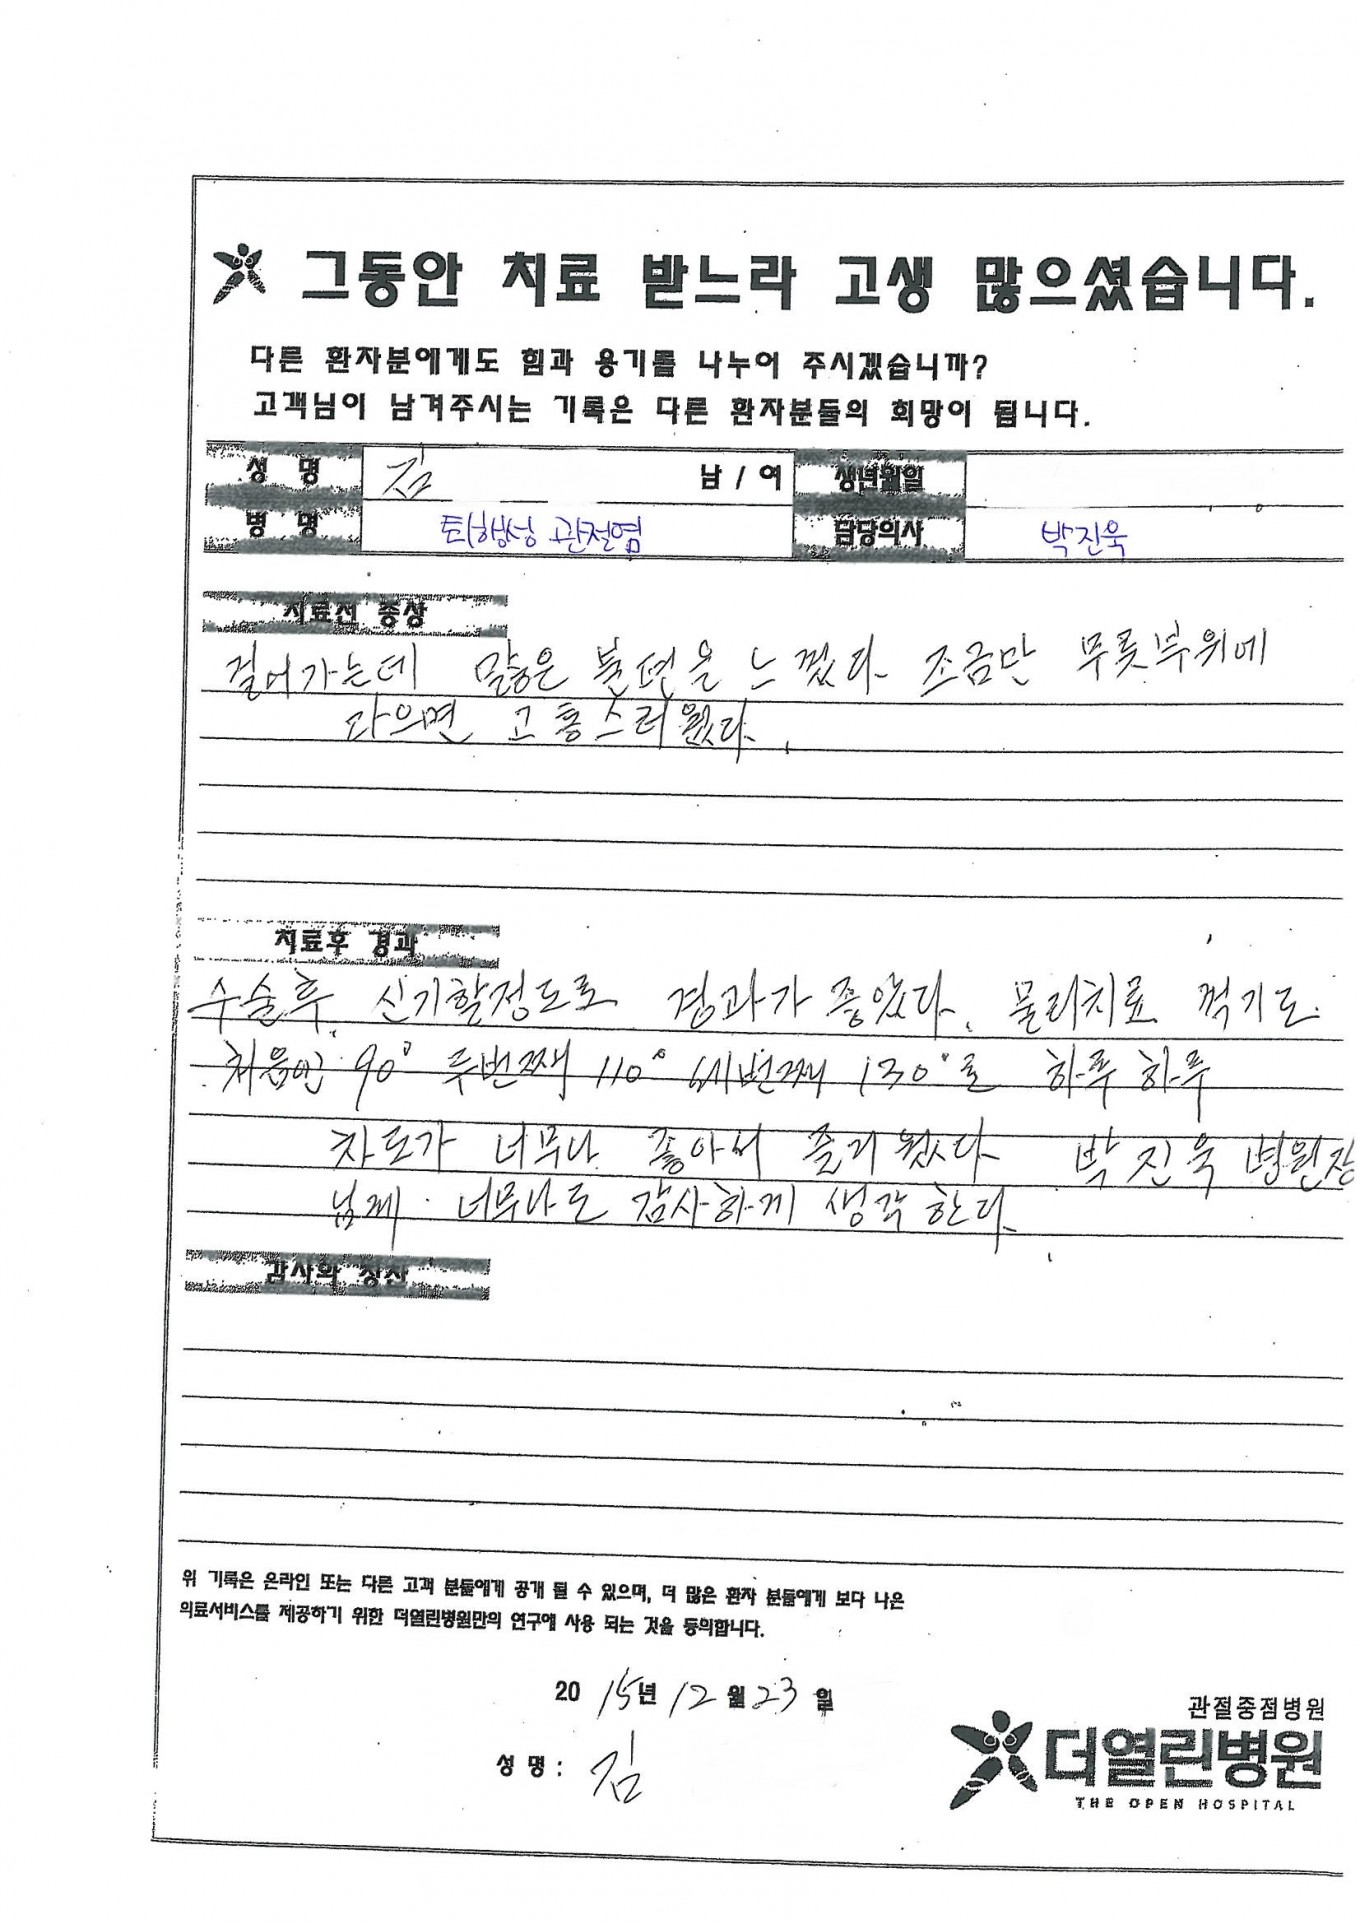 그동안 치료 받느라 고생 많으셨습니다.
다른 환자분에게도 힘과 용기를 나누어 주시겠습니까?
고객님이 남겨주시는 기록은 다른 환자분들의 희망이 됩니다.
성 명 김 남 / 여 생년월일
병 명 퇴행성 관절염 담당의사 박진욱
치료전 증상
걸어가는데 많은 불편을 느꼈다. 조금만 무릎부위에
다으면 고통스러웠다.
치료후 경과
수술후, 신기할정도로 경과가 좋았다. 물리치료 꺽기도
처음엔 90° 두번째 110° 세번째 130°로 하루 하루
차도가 너무나 좋아서 즐거웠다 박진욱 병원장
님께 너무나도 감사하게 생각 한다.
감사와 칭찬
위 기록은 온라인 또는 다른 고객 분들에게 공개 될 수 있으며, 더 많은 환자 분들에게 보다 나은
의료서비스를 제공하기 위한 더열린병원만의 연구에 사용 되는 것을 동의합니다.
2015년 12월 23일
성 명 : 김
관절중점병원
더열린병원
THE OPEN HOSPITAL